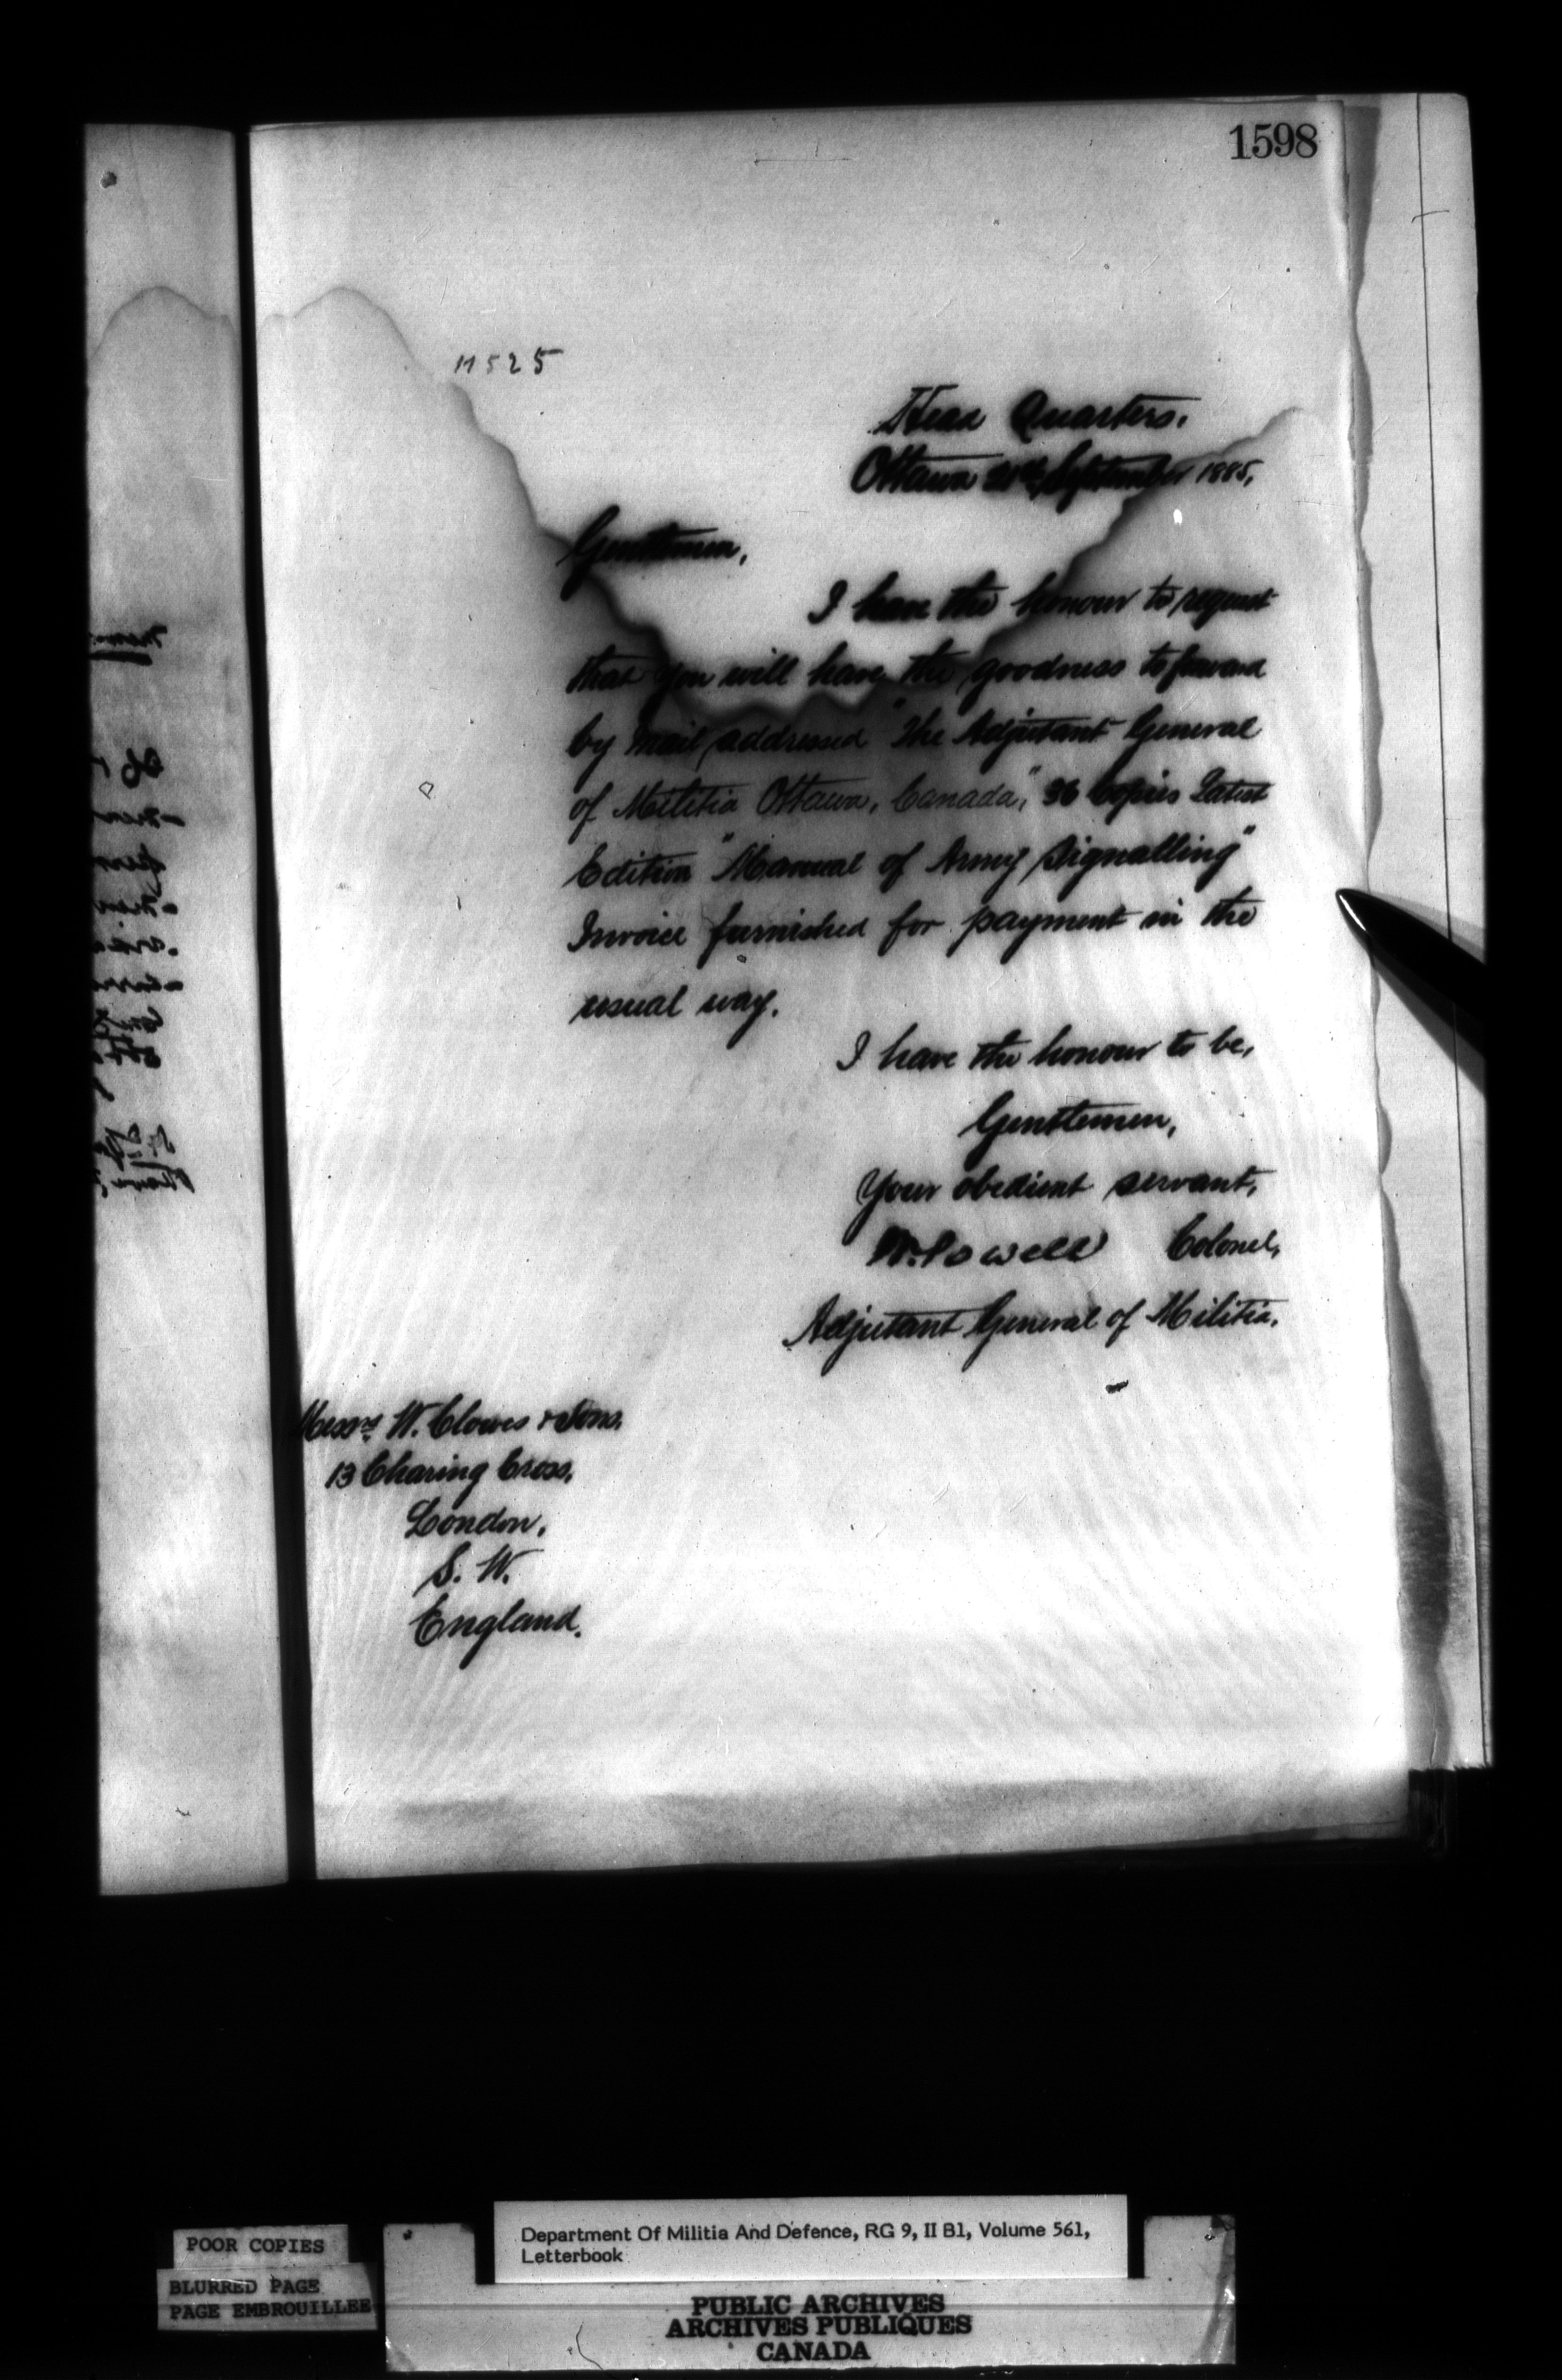 1598
11525
Head Quarters.
Ottawa September 1885,
Gentlemen,
I have the honour to request
that you will have the goodness to forward
by mail addressed "The Adjutant General
of Militia Ottawa, Canada," 36 Copies Latest
Edition "Manual of Army Signalling"
Invoice furnished for payment in the
usual way.
I have the honour to be,
Gentlemen,
Your obedient servant,
W. Powell Colonel,
Adjutant General of Militia.
Messrs W. Clowes & Sons,
13 Charing Cross,
London,
S. W.
England.
POOR COPIES
BLURRED PAGE
PAGE EMBROUILLEE
Department Of Militia And Defence, RG 9, II B1, Volume 561,
Letterbook
PUBLIC ARCHIVES
ARCHIVES PUBLIQUES
CANADA